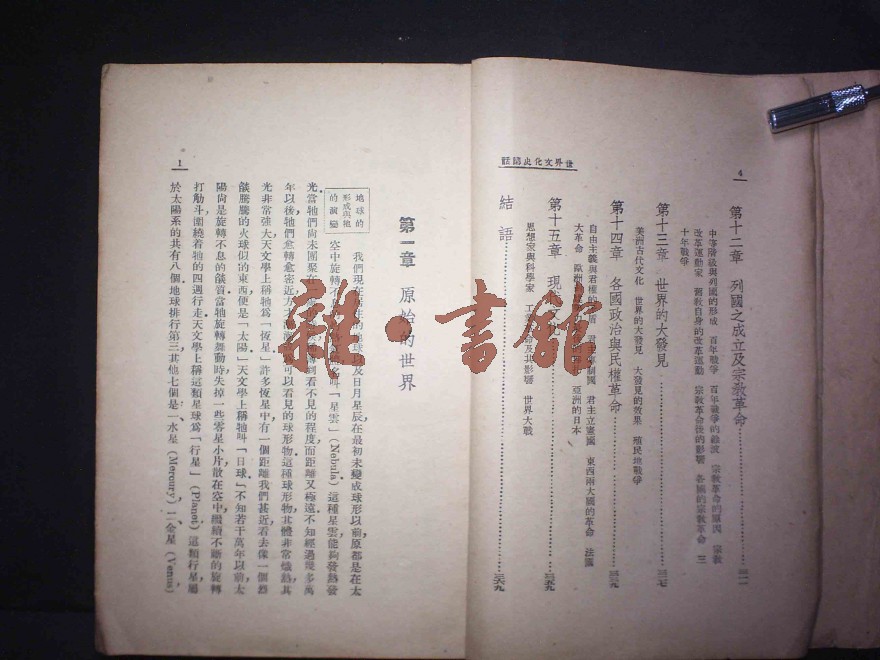 世界文化史講話
4
第十二章 列國之成立及宗教革命
中等階級與列國的形成 百年戰爭 百年戰爭的餘波 宗教革命的原因 宗教
改革運動家 舊教自身的改革運動 宗教革命後的影響 各國的宗教革命 三
十年戰爭
第十三章 世界的大發見
美洲古代文化 世界的大發見 大發見的效果 殖民地戰爭
第十四章 各國政治與民權革命
自由主義與君權的 君主 制國 君主立憲國 東西兩大國的革命 法國
大革命 歐洲 亞洲的日本
第十五章 現代
思想家與科學家 工 命及其影響 世界大戰
結語
1
第一章 原始的世界
地球的
形成與牠
的演變
我們現在 球以及日月星辰在最初未變成球形以前原都是在太
空中旋轉不 叫「星雲」(Nebula)這種星雲能夠發熱發
光當牠們尚未團聚在 到看不見的程度而距離又極遠不知經過幾多萬
年以後牠們愈轉愈密近方 可以看見的球形物這種球形物其體非常熾熱其
光非常強大天文學上稱牠爲「恆星」許多恆星中有一個距離我們甚近看去像一個熱
燄騰騰的火球似的東西便是「太陽」天文學上稱牠叫「日球」不知若干萬年以前太
陽尚是旋轉不息的燄質當牠旋轉舞動時失掉一些零星小片散在空中繼續不斷的旋轉
打觔斗圍繞着牠的四週行走天文學上稱這類星球爲「行星」(Planet)這類行星屬
於太陽系的共有八個地球排行第三其他七個是一水星(Mercury)二金星(Venus)
雜·書館